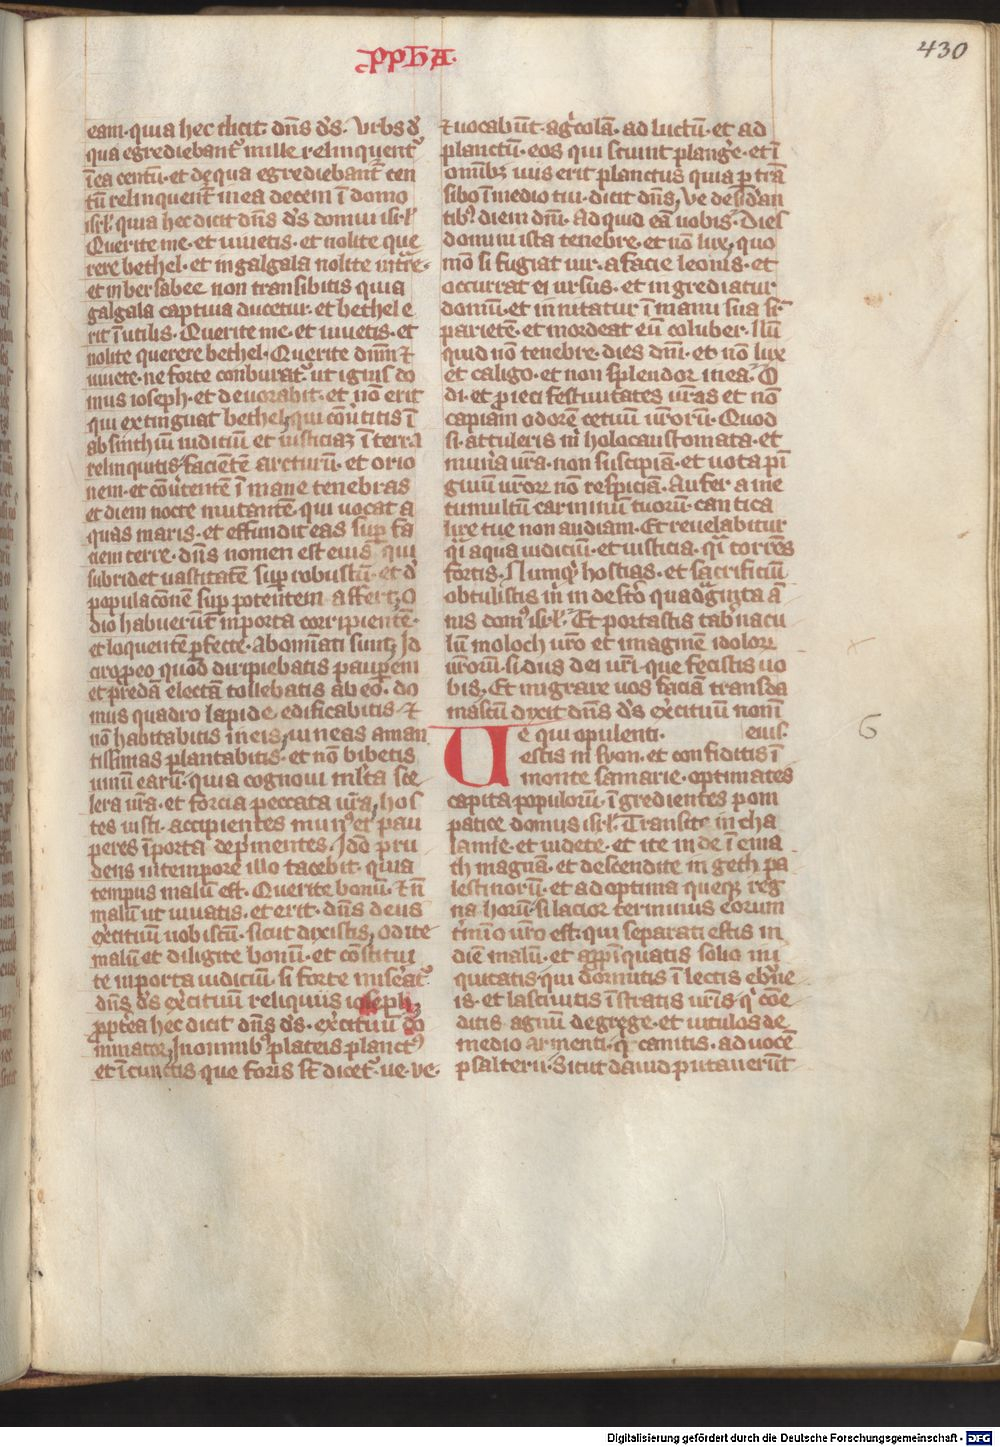 pphA.
430
eam. quia hec dicit dn̄s d̄s. Vrbs d̓
qua egrediebant᷑ mille relinquent᷑
ī ea centū. et de qua egrediebant᷑ cen
tū relinquent᷑ in ea decem ī domo
isr̄l. quia hec dicit dn̄s d̄s domui isr̄l
Querite me. et uiuetis. et nolite que
rere bethel. et in galgala nolite intr̄e.
et in bersabee non transibitis quia
galgala captiua ducetur. et bethel e
rit īutilis. Querite me. et uiuetis. et
nolite querere bethel. Querite dnm̄ ⁊
uiuete. ne forte conburat᷑ ut ignis do
mus ioseph. et deuorabit. et nō erit
qui extinguat bethel, qui cōu̓titis ī
absinthiū iudiciū et iusticiaꝫ ī terra
relinquitis, facientē arcturū. et orio
nem. et cōu̓tentē ī mane tenebras
et diem nocte mutantē. qui uocat a
quas maris. et effundit eas sup̄ fa
ciem terre. dn̄s nomen est eius. qui
subridet uastitatē sup̄ robustū. et d̓
populac̄onē sup̄ potentem affert, O
dio habuerūt in porta corripientē.
et loquentē ꝑfecte. abominati sunt, Id
circo p̄ eo quod diripiebatis pauperem
et predā electā tollebatis ab eo. do
mus quadro lapide edificabitis ⁊
nō habitabitis in eis, uineas aman
tissimas plantabitis. et nō bibetis
uinū earū. quia cognoui ml̄ta sce
lera ur̄a. et forcia peccata ur̄a, hos
tes iusti. accipientes mun̓. et pau
peres ī porta dep̓mentes. Ido̅ pru
dens in tempore illo tacebit. quia
tempus malū est. Querite bonū. ⁊ n̄
malū ut uiuatis. et erit. dn̄s deus
ex̓cituū uobiscū. sicut dixistis, odite
malū et diligite bonū. et cōstitui
te in porta iudiciū. si forte mis̓eat᷑
dn̄s d̄s ex̓cituū reliquiis ioseph,
propt̓ea hec dicit dn̄s d̄s. ex̓cituū do
minator, In omnib᷒ plateis planct᷒
et ī cunctis que foris st̄ dicet᷑. ue. ve.
⁊ uocabūt. ag̓colā. ad luctū. et ad
planctū. eos qui sciunt plang̓e. et ī
omnibꝫ uiis erit planctus quia ꝑ trā
sibo ī medio tui. dicit dn̄s, Ve desid̓an
tib᷒ diem dnī. Ad quid eā uobis. Dies
domini ista tenebre. et nō lux, quo
mō si fugiat uir. a facie leonis. et
occurrat ei ursus. et ingrediatur
domū. et innitatur ī manu sua sr̄
parietē. et mordeat eū coluber. Nū
quid nō tenebre. dies dnī. et nō lux
et caligo. et non splendor in ea. O
di. et proieci festiuitates ur̄as et nō
capiam odorē cetuū ur̄orū. Quod
si. attuleris m̄ holocaustomata. et
mun̓a ur̄a. non suscipiā. et uota pī
guiū ur̄orꝝ nō respiciā. Aufer a me
tumultū carminū tuorū. cantica
lire tue non audiam. Et reuelabitur
q̄i aqua iudiciū. et iusticia. q̄i torrēs
fortis. Numq̄ hostias. et sacrificiū
obtulistis m̄ in des̓to quadg̓inta ā
nis dom᷒ isr̄l. Et portastis tab̓nacu
lū moloch ur̄o et imaginē idolorꝝ
ur̄orū. sidus dei ur̄i. que fecistis uo
bis, Et migrare uos faciā trans da
mascū dixit dn̄s d̄s ex̓cituū nom̄
eius.
Ue qui opulenti.
estis in syon. et confiditis ī
monte samarie. optimates
capita populorū. īgredientes pom
patice domus isr̄l. Transite in cha
lanne. et uidete. et ite inde ī ema
th magnā. et descendite in geth pa
lestinorū. et ad optima queqꝫ reg
na horū. si lacior terminus eorum
t̓mīo ur̄o est. qui separati estis in
diē malū. et appīquatis solio ini
quitatis. qui dormitis ī lectis eb̓ne
is. et lasciuitis ī stratis ur̄is. q̓ cōe
ditis agnū de grege. et uitulos de
medio armenti. q̓ canitis. ad uocē
psalterii. Sicut dauid putauerūt
G
Digitalisierung gefördert durch die Deutsche Forschungsgemeinschaft - DFG